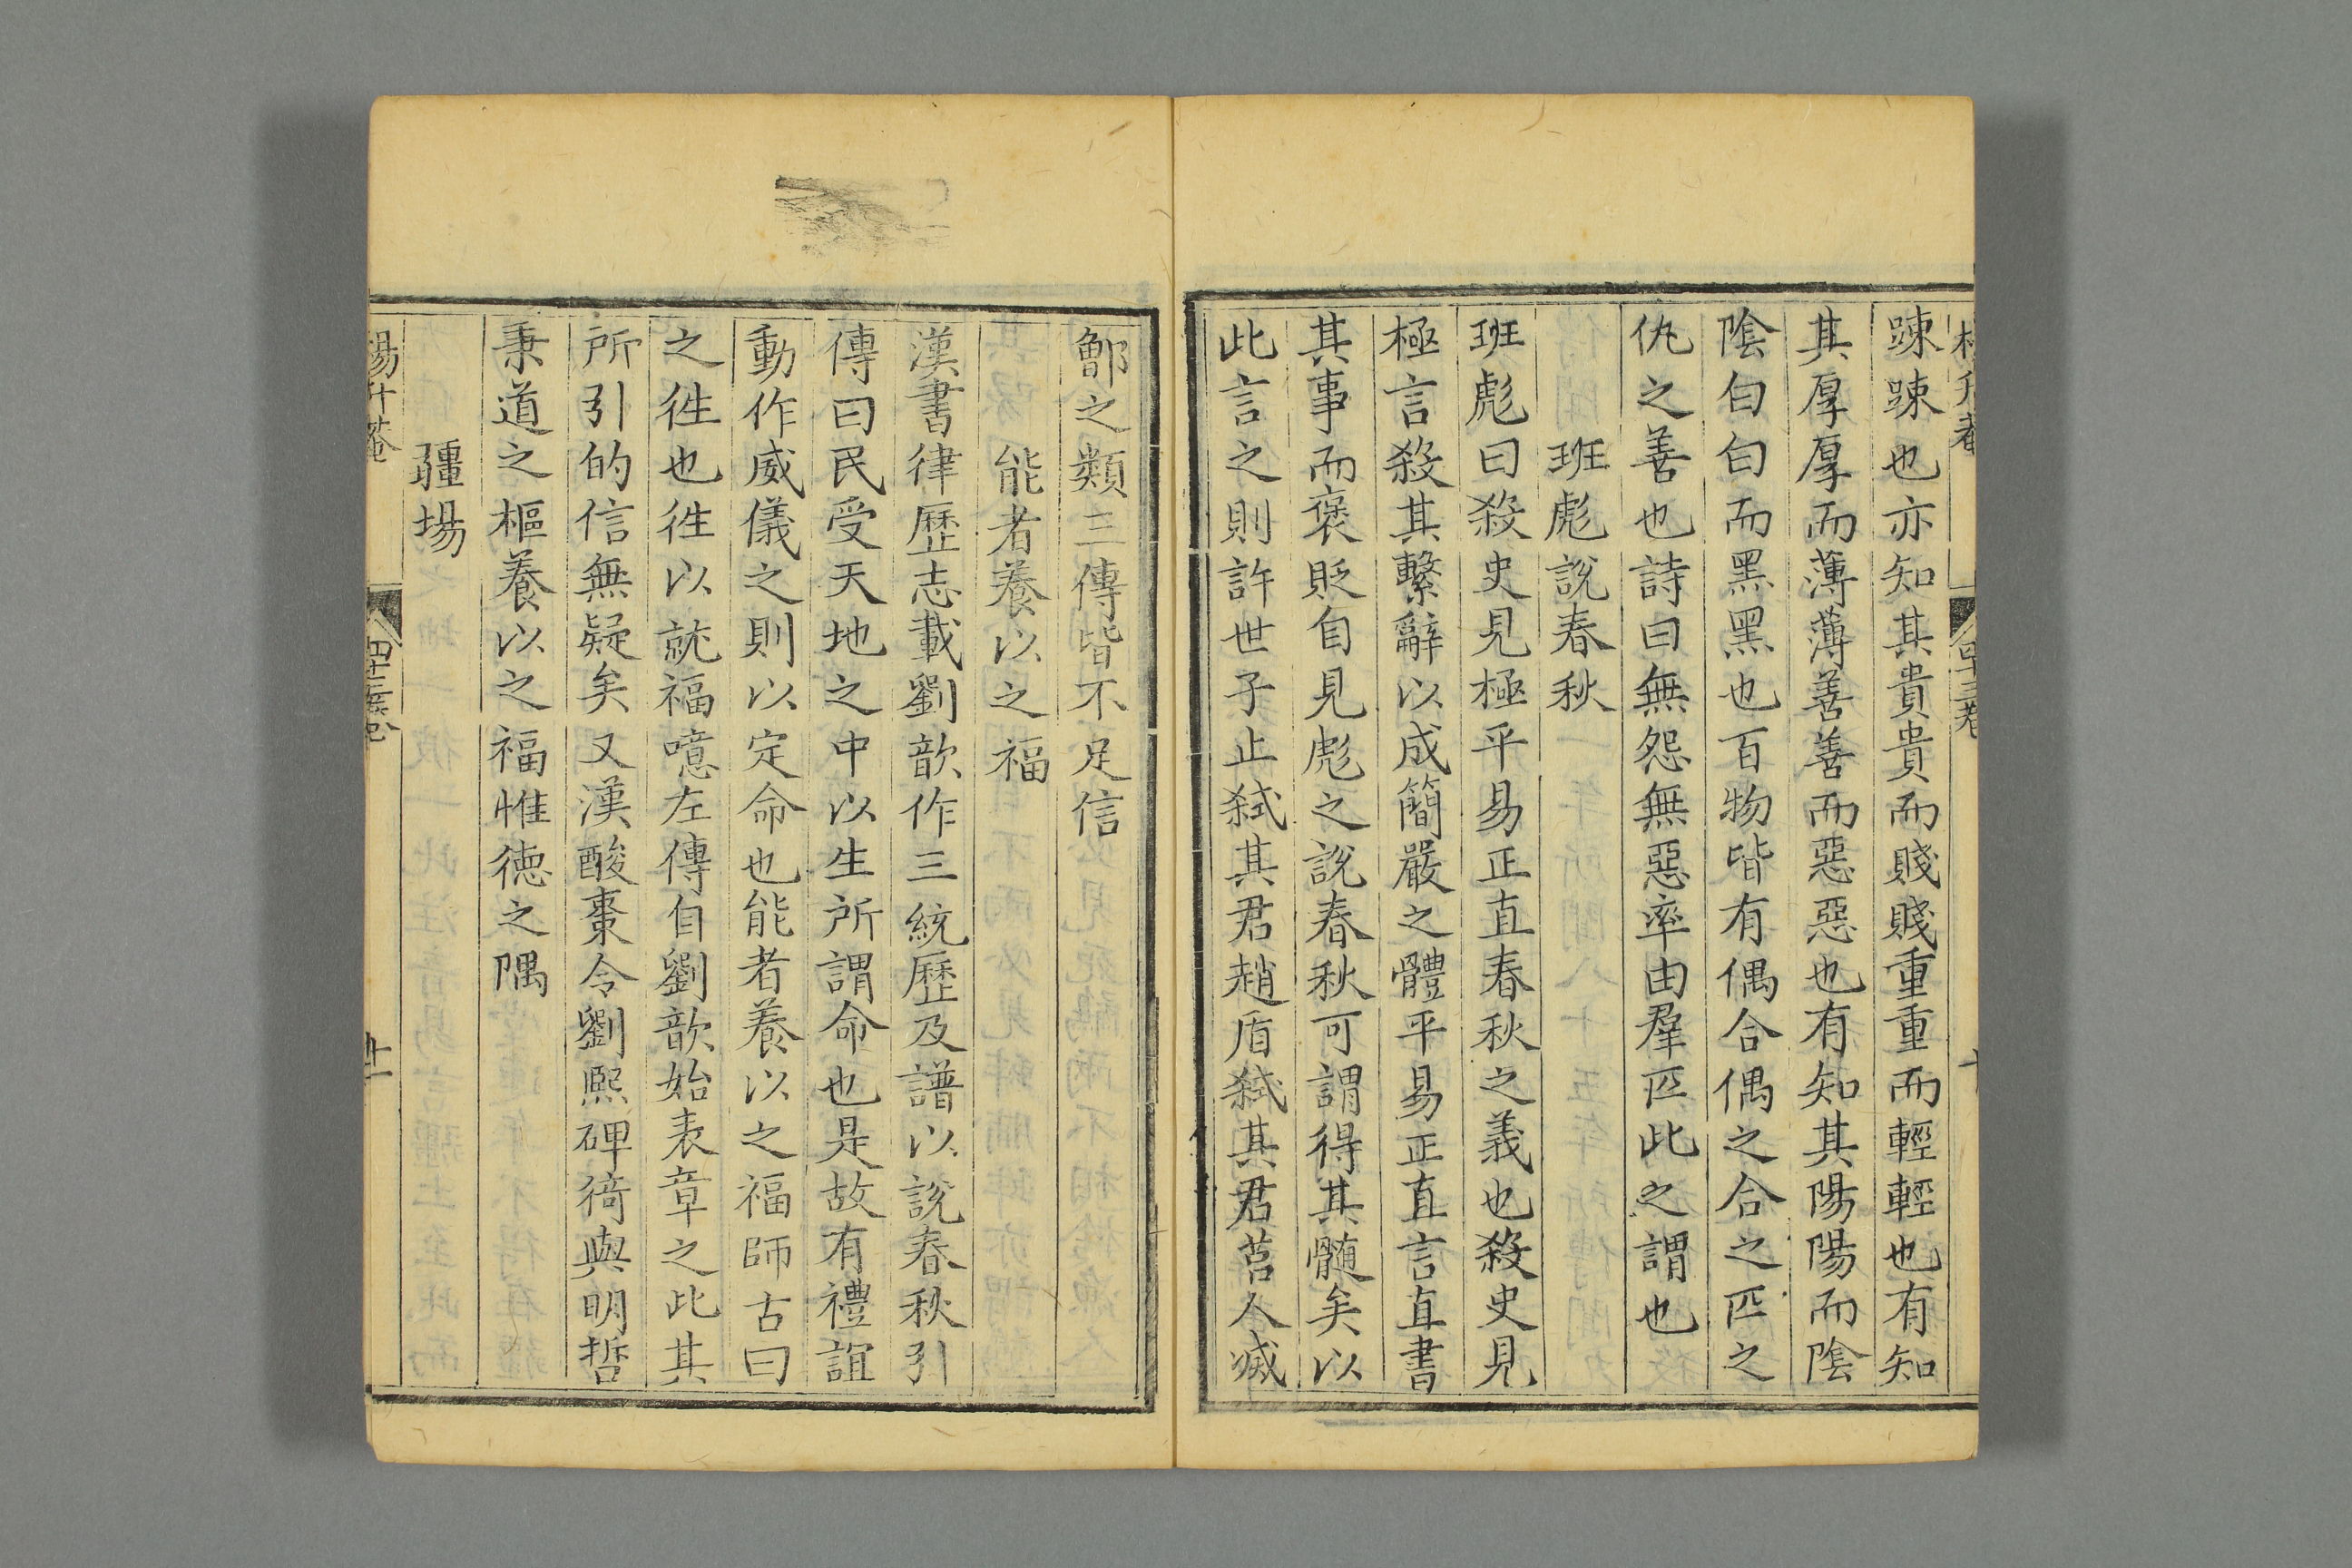 踈踈也亦知其貴貴而賤賤重重而輕輕也有知
其厚厚而薄薄善善而惡惡也有知其陽陽而陰
陰白白而黑黑也百物皆有偶合偶之合之匹之
仇之善也詩曰無怨無惡率由羣匹此之謂也
班彪說春秋
班彪曰殺史見極平易正直春秋之義也殺史見
極言殺其繫辭以成簡嚴之體平易正直言直書
其事而褒貶自見彪之說春秋可謂得其髓矣以
此言之則許世子止弑其君趙盾弑其君莒人滅
鄫之類三傳皆不足信
能者養以之福
漢書律歷志載劉歆作三統歷及譜以說春秋引
傳曰民受天地之中以生所謂命也是故有禮誼
動作威儀之則以定命也能者養以之福師古曰
之徃也徃以就福噫左傳自劉歆始表章之此其
所引的信無疑矣又漢酸棗令劉熙碑猗與明哲
秉道之樞養以之福惟德之隅
疆場
楊升菴
十一